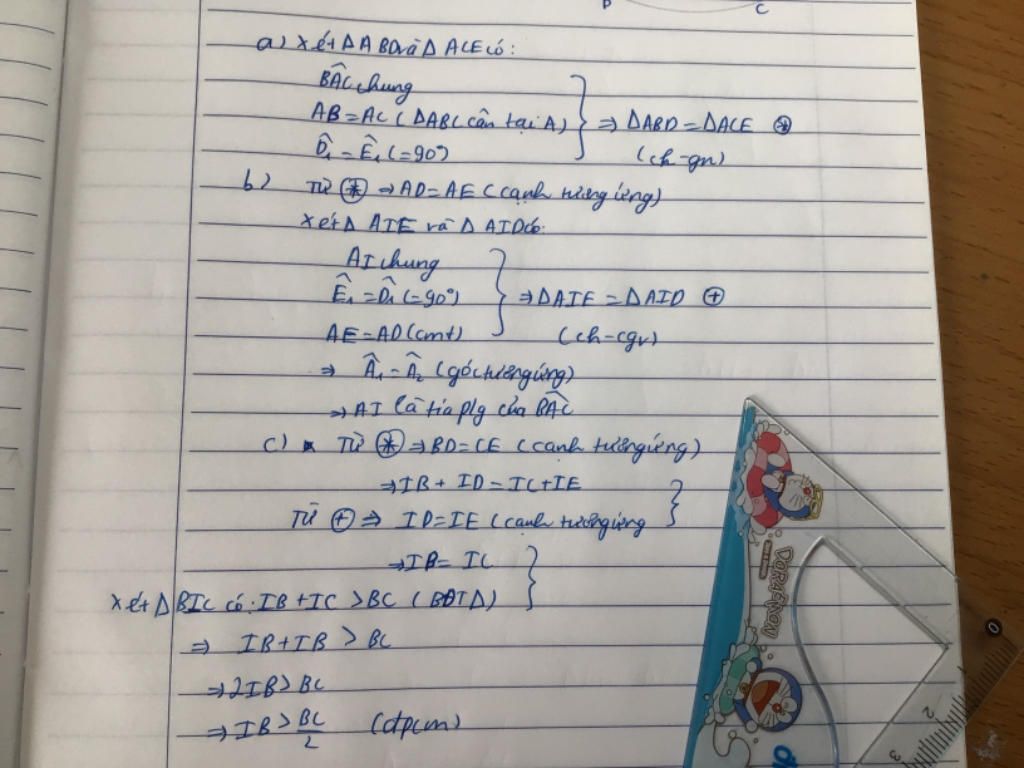 B C
a) Xét ΔABD và ΔACE có:
BÂC chung
AB = AC (ΔABC cân tại A)
D̂₁ = Ê₁ (= 90°)
⇒ ΔABD = ΔACE ⊛
(ch-gn)
b) Từ ⊛ ⇒ AD = AE (cạnh tương ứng)
Xét Δ AIE và Δ AID có:
AI chung
Ê₁ = D̂₁ (= 90°)
AE = AD (cmt)
⇒ ΔAIE = ΔAID ⊕
(ch-cgv)
⇒ Â₁ = Â₂ (góc tương ứng)
⇒ AI là tia p/g của BÂC
c) Từ ⊛ ⇒ BD = CE (cạnh tương ứng)
⇒ IB + ID = IC + IE
Từ ⊕ ⇒ ID = IE (cạnh tương ứng
⇒ IB = IC
Xét Δ BIC có: IB + IC > BC (BĐTΔ)
⇒ IB + IB > BC
⇒ 2IB > BC
⇒ IB > BC/2 (đpcm)
DORAEMON
0
2
3